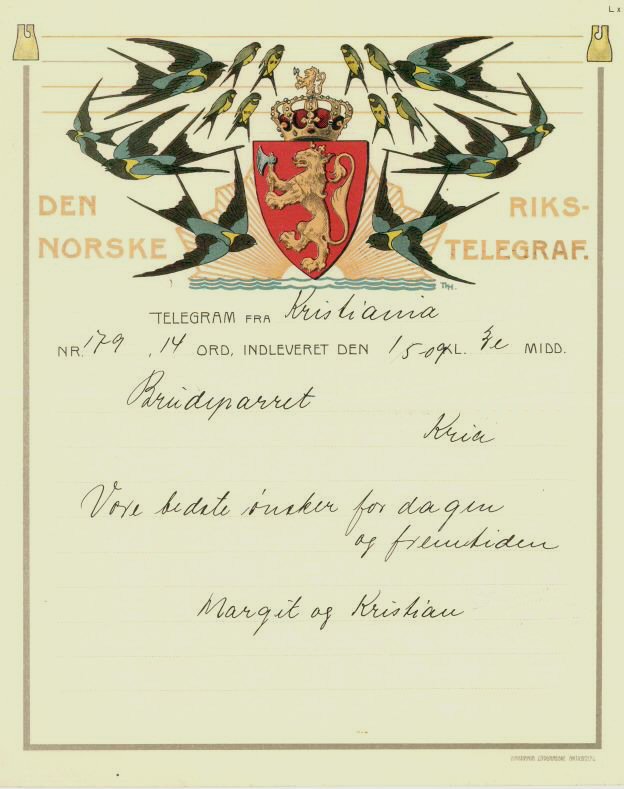 Lx
DEN RIKS-
NORSKE TELEGRAF.
TH.
TELEGRAM FRA Kristiania
NR. 179 , 14 ORD, INDLEVERET DEN 1/5-09 KL. 3 e MIDD.
Brudeparret
Kria
Vore bedste ønsker for dagen
og fremtiden
Margit og Kristian